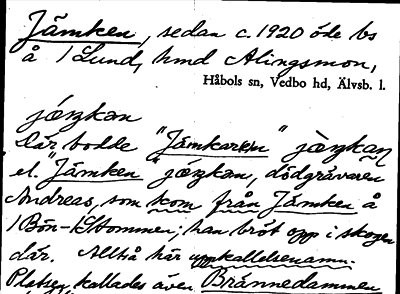 Jämken, sedan c. 1920 öde bs
å 1 Lund, hmd Alingsmon,
Håbols sn, Vedbo hd, Älvsb. l.
Där bodde "Jämkarn"
el. "Jämken", dödgrävaren
Andreas, som kom från Jämken å
1 Bön-Stommen; han bröt opp i skogen
där. Alltså här uppkallelsenamn.
Platsen kallades även Brännedammen